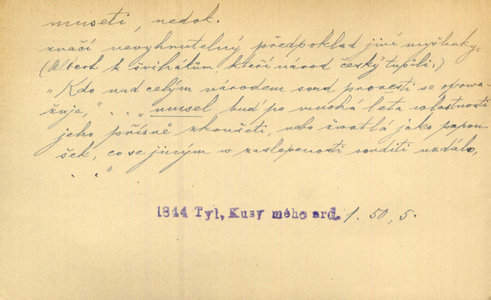 museti, nedok.
značí nevyhnutelný předpoklad jiné myšlenky.
(Albert k švihákům, kteří národ český tupili:)
„Kdo nad celým národem soud pronesti se opova-
žuje," . . „musel buď po mnohá leta vlastnosti
jeho přísně zkoušeti, nebo žvatlá jako papou-
šek, co se jiným v zaslepenosti souditi uzdálo,
. . "
1844 Tyl, Kusy mého srd. 1. 50, 5.